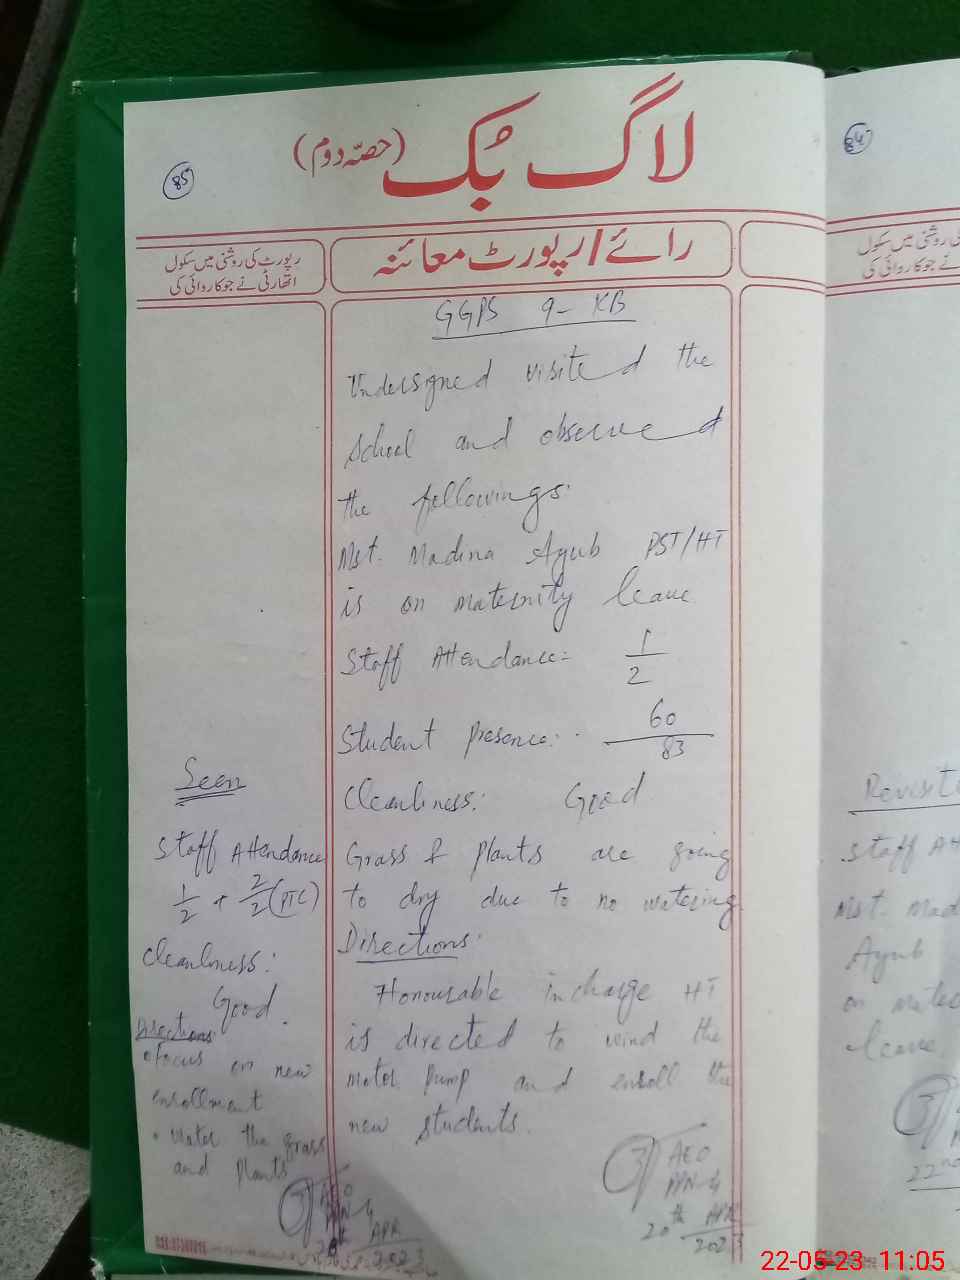 لاگ بُک (حصّہ دوم)
85
84
رپورٹ کی روشنی میں سکول
اتھارٹی نے جو کاروائی کی
رائے/رپورٹ معائنہ
GGPS 9-KB
Undersigned visited the
school and observed
the followings:
Mst. Madina Ayub PST/HT
is on maternity leave
Staff Attendance = 1/2
Student Presence: 60/83
Cleanliness: Good
Grass & plants are going
to dry due to no watering.
Directions:
Honourable incharge HT
is directed to wind the
motor pump and enroll the
new students.
AEO
PPN-4
20th APR
2023
Seen
Staff Attendance
1/2 + 2/2 (PTC)
Cleanliness:
Good.
Directions
focus on new
enrollment
• water the grass
and plants
AEO
APR
2023
روشنی میں سکول
نے جو کاروائی کی
Staff
Mst. Mad
Ayub
on
leave
22nd
22-05-23 11:05